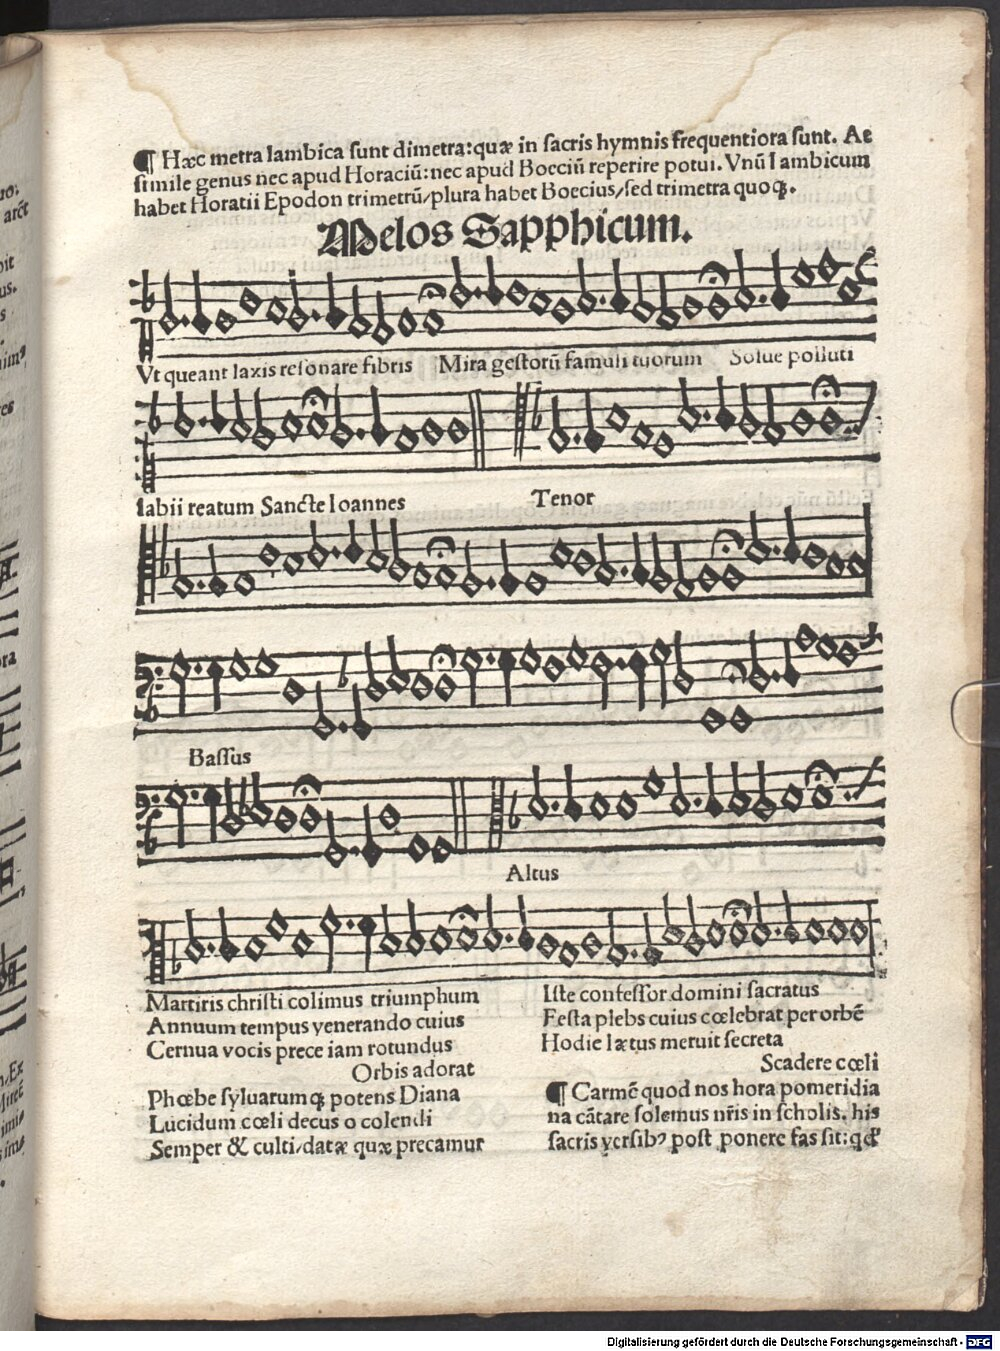 ¶ Hæc metra Iambica sunt dimetra:quæ in sacris hymnis frequentiora sunt. At
simile genus nec apud Horaciū:nec apud Bocciū reperire potui. Vnū Iambicum
habet Horatii Epodon trimetrū/plura habet Boecius/sed trimetra quoqꝫ.
Melos Sapphicum.
Vt queant laxis resonare fibris Mira gestorū famuli tuorum Solue polluti
labii reatum Sancte Ioannes Tenor
Bassus
Altus
Martiris christi colimus triumphum
Annuum tempus venerando cuius
Cernua vocis prece iam rotundus
Orbis adorat
Phœbe syluarumqꝫ potens Diana
Lucidum cœli decus o colendi
Semper & culti/datæ quæ precamur
Iste confessor domini sacratus
Festa plebs cuius cœlebrat per orbē
Hodie lætus meruit secreta
Scadere cœli
¶ Carmē quod nos hora pomeridia
na cātare solemus nr̄is in scholis. his
sacris versibꝰ post ponere fas sit:qđ
Digitalisierung gefördert durch die Deutsche Forschungsgemeinschaft - DFG